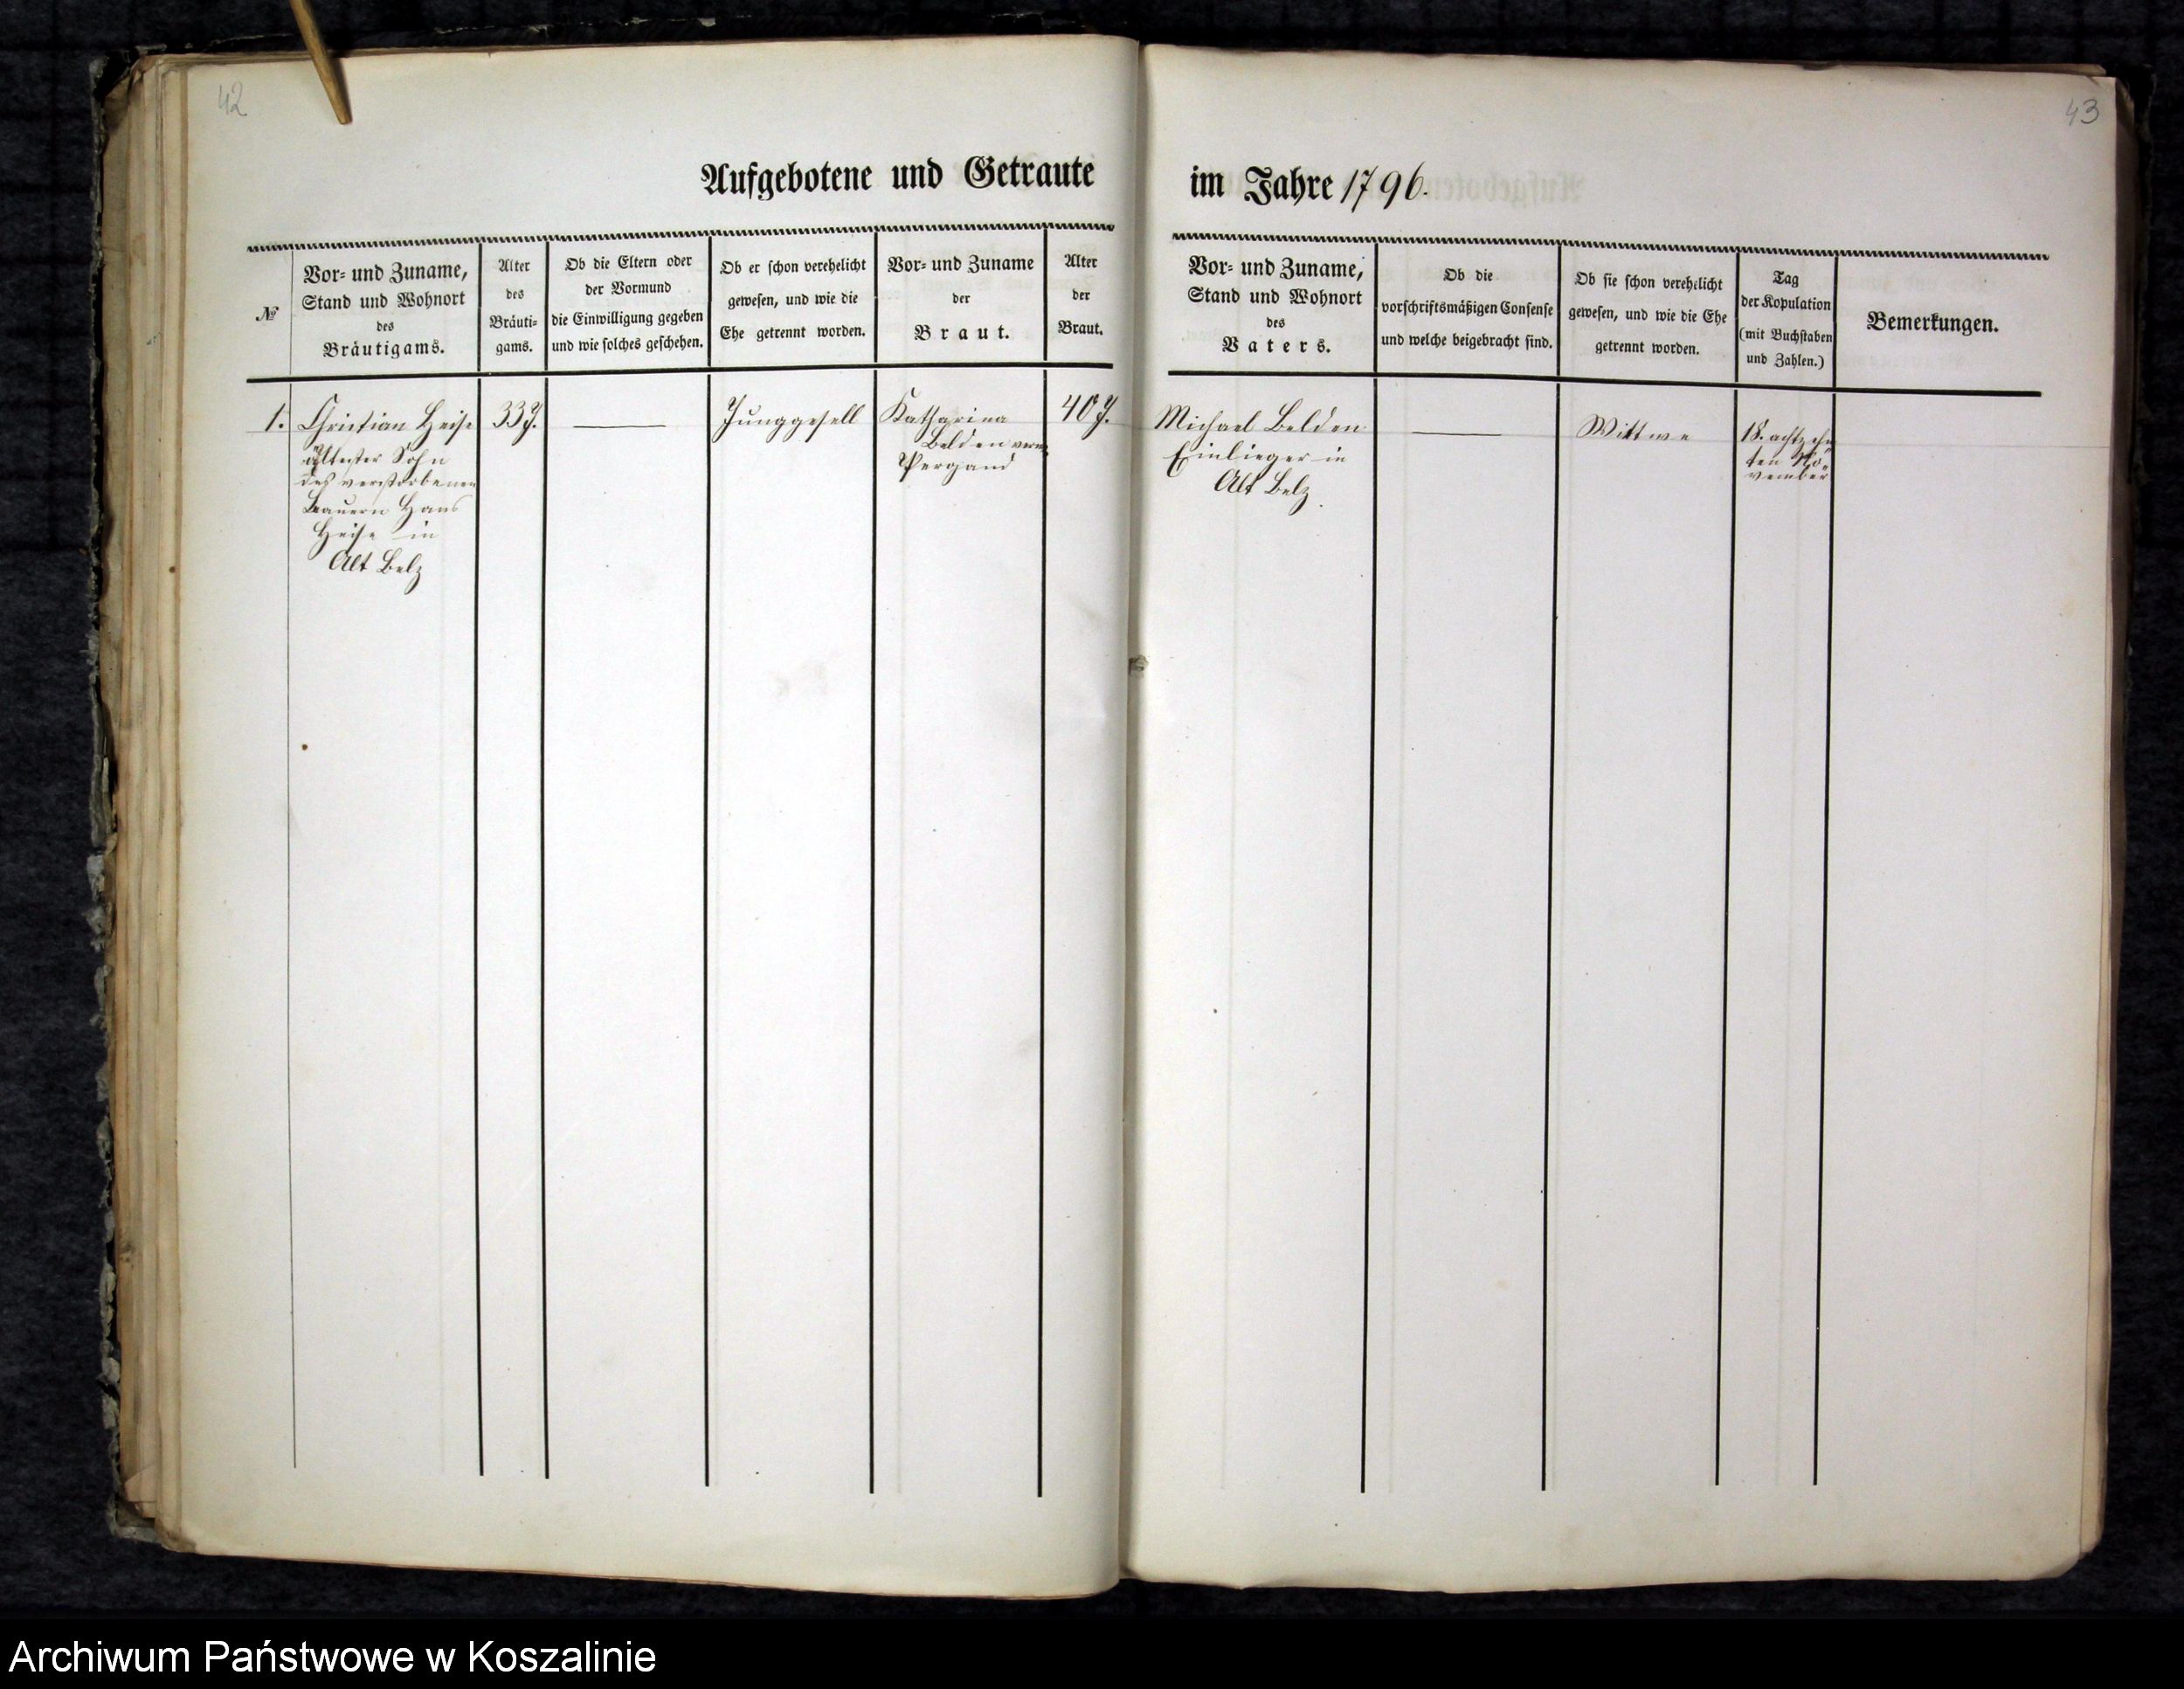 42
43
Aufgebotene und Getraute
im Jahre 1796.
№
Vor- und Zuname,
Stand und Wohnort
des
Bräutigams.
Alter
des
Bräuti-
gams.
Ob die Eltern oder
der Vormund
die Einwilligung gegeben
und wie solches geschehen.
Ob er schon verehelicht
gewesen, und wie die
Ehe getrennt worden.
Vor- und Zuname
der
Braut.
Alter
der
Braut.
Vor- und Zuname,
Stand und Wohnort
des
Vaters.
Ob die
vorschriftsmäßigen Consense
und welche beigebracht sind.
Ob sie schon verehelicht
gewesen, und wie die Ehe
getrennt worden.
Tag
der Kopulation
(mit Buchstaben
und Zahlen.)
Bemerkungen.
1.
Christian Heise
ältester Sohn
des verstorbenen
Bauern Hans
Heise in
Alt Belz
33 J.
Junggesell
Katharina
Belden
Pergand
40 J.
Michael Belden
Einlieger in
Alt Belz.
Wittwe
18. achtzehn
ten No-
vember
Archiwum Państwowe w Koszalinie